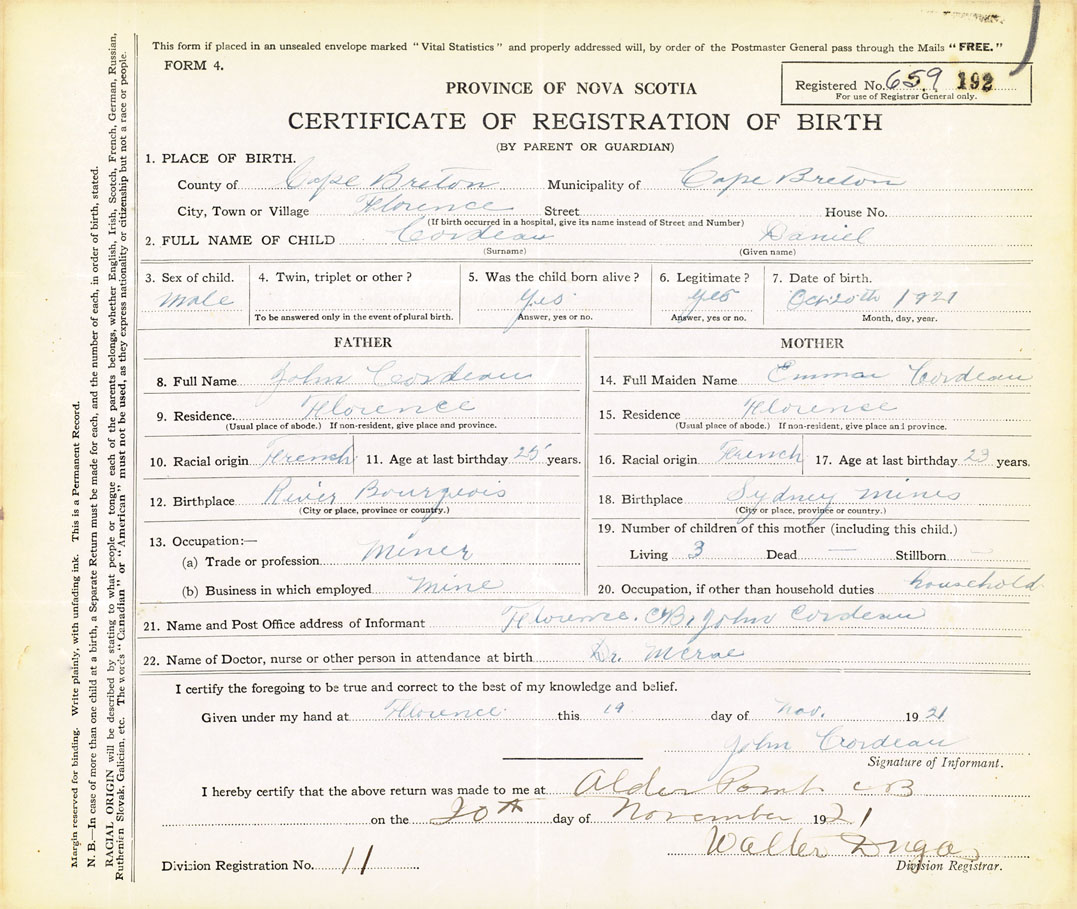 This form if placed in an unsealed envelope marked "Vital Statistics" and properly addressed will, by order of the Postmaster General pass through the Mails "FREE."
FORM 4.
Registered No. 659 192
For use of Registrar General only.
PROVINCE OF NOVA SCOTIA
CERTIFICATE OF REGISTRATION OF BIRTH
(BY PARENT OR GUARDIAN)
1. PLACE OF BIRTH.
County of Cape Breton Municipality of Cape Breton
City, Town or Village Florence Street House No.
(If birth occurred in a hospital, give its name instead of Street and Number)
2. FULL NAME OF CHILD Cordeau Daniel
(Surname) (Given name)
3. Sex of child. 4. Twin, triplet or other? 5. Was the child born alive? 6. Legitimate? 7. Date of birth.
Male Yes Yes Oct 20th 1921
To be answered only in the event of plural birth. Answer, yes or no. Answer, yes or no. Month, day, year.
FATHER
8. Full Name John Cordeau
9. Residence. Florence
(Usual place of abode.) If non-resident, give place and province.
10. Racial origin French 11. Age at last birthday 25 years.
12. Birthplace River Bourgeois
(City or place, province or country.)
13. Occupation:—
(a) Trade or profession Miner
(b) Business in which employed Mine
MOTHER
14. Full Maiden Name Emma Cordeau
15. Residence Florence
(Usual place of abode.) If non-resident, give place and province.
16. Racial origin French 17. Age at last birthday 23 years.
18. Birthplace Sydney Mines
(City or place, province or country.)
19. Number of children of this mother (including this child.)
Living 3 Dead — Stillborn —
20. Occupation, if other than household duties household
21. Name and Post Office address of Informant Florence. C.B. John Cordeau
22. Name of Doctor, nurse or other person in attendance at birth Dr. McRae
I certify the foregoing to be true and correct to the best of my knowledge and belief.
Given under my hand at Florence. this 19 day of Nov. 1921
John Cordeau
Signature of Informant.
I hereby certify that the above return was made to me at Alder Point CB
on the 20th day of November 1921
Walter Dugas
Division Registration No. 11 Division Registrar.
Margin reserved for binding. Write plainly, with unfading ink. This is a Permanent Record.
N. B.—In case of more than one child at a birth, a Separate Return must be made for each, and the number of each, in order of birth, stated.
RACIAL ORIGIN will be described by stating to what people or tongue each of the parents belongs, whether English, Irish, Scotch, French, German, Russian,
Ruthenian Slovak, Galician, etc. The words "Canadian" or "American" must not be used, as they express nationality or citizenship but not a race or people.